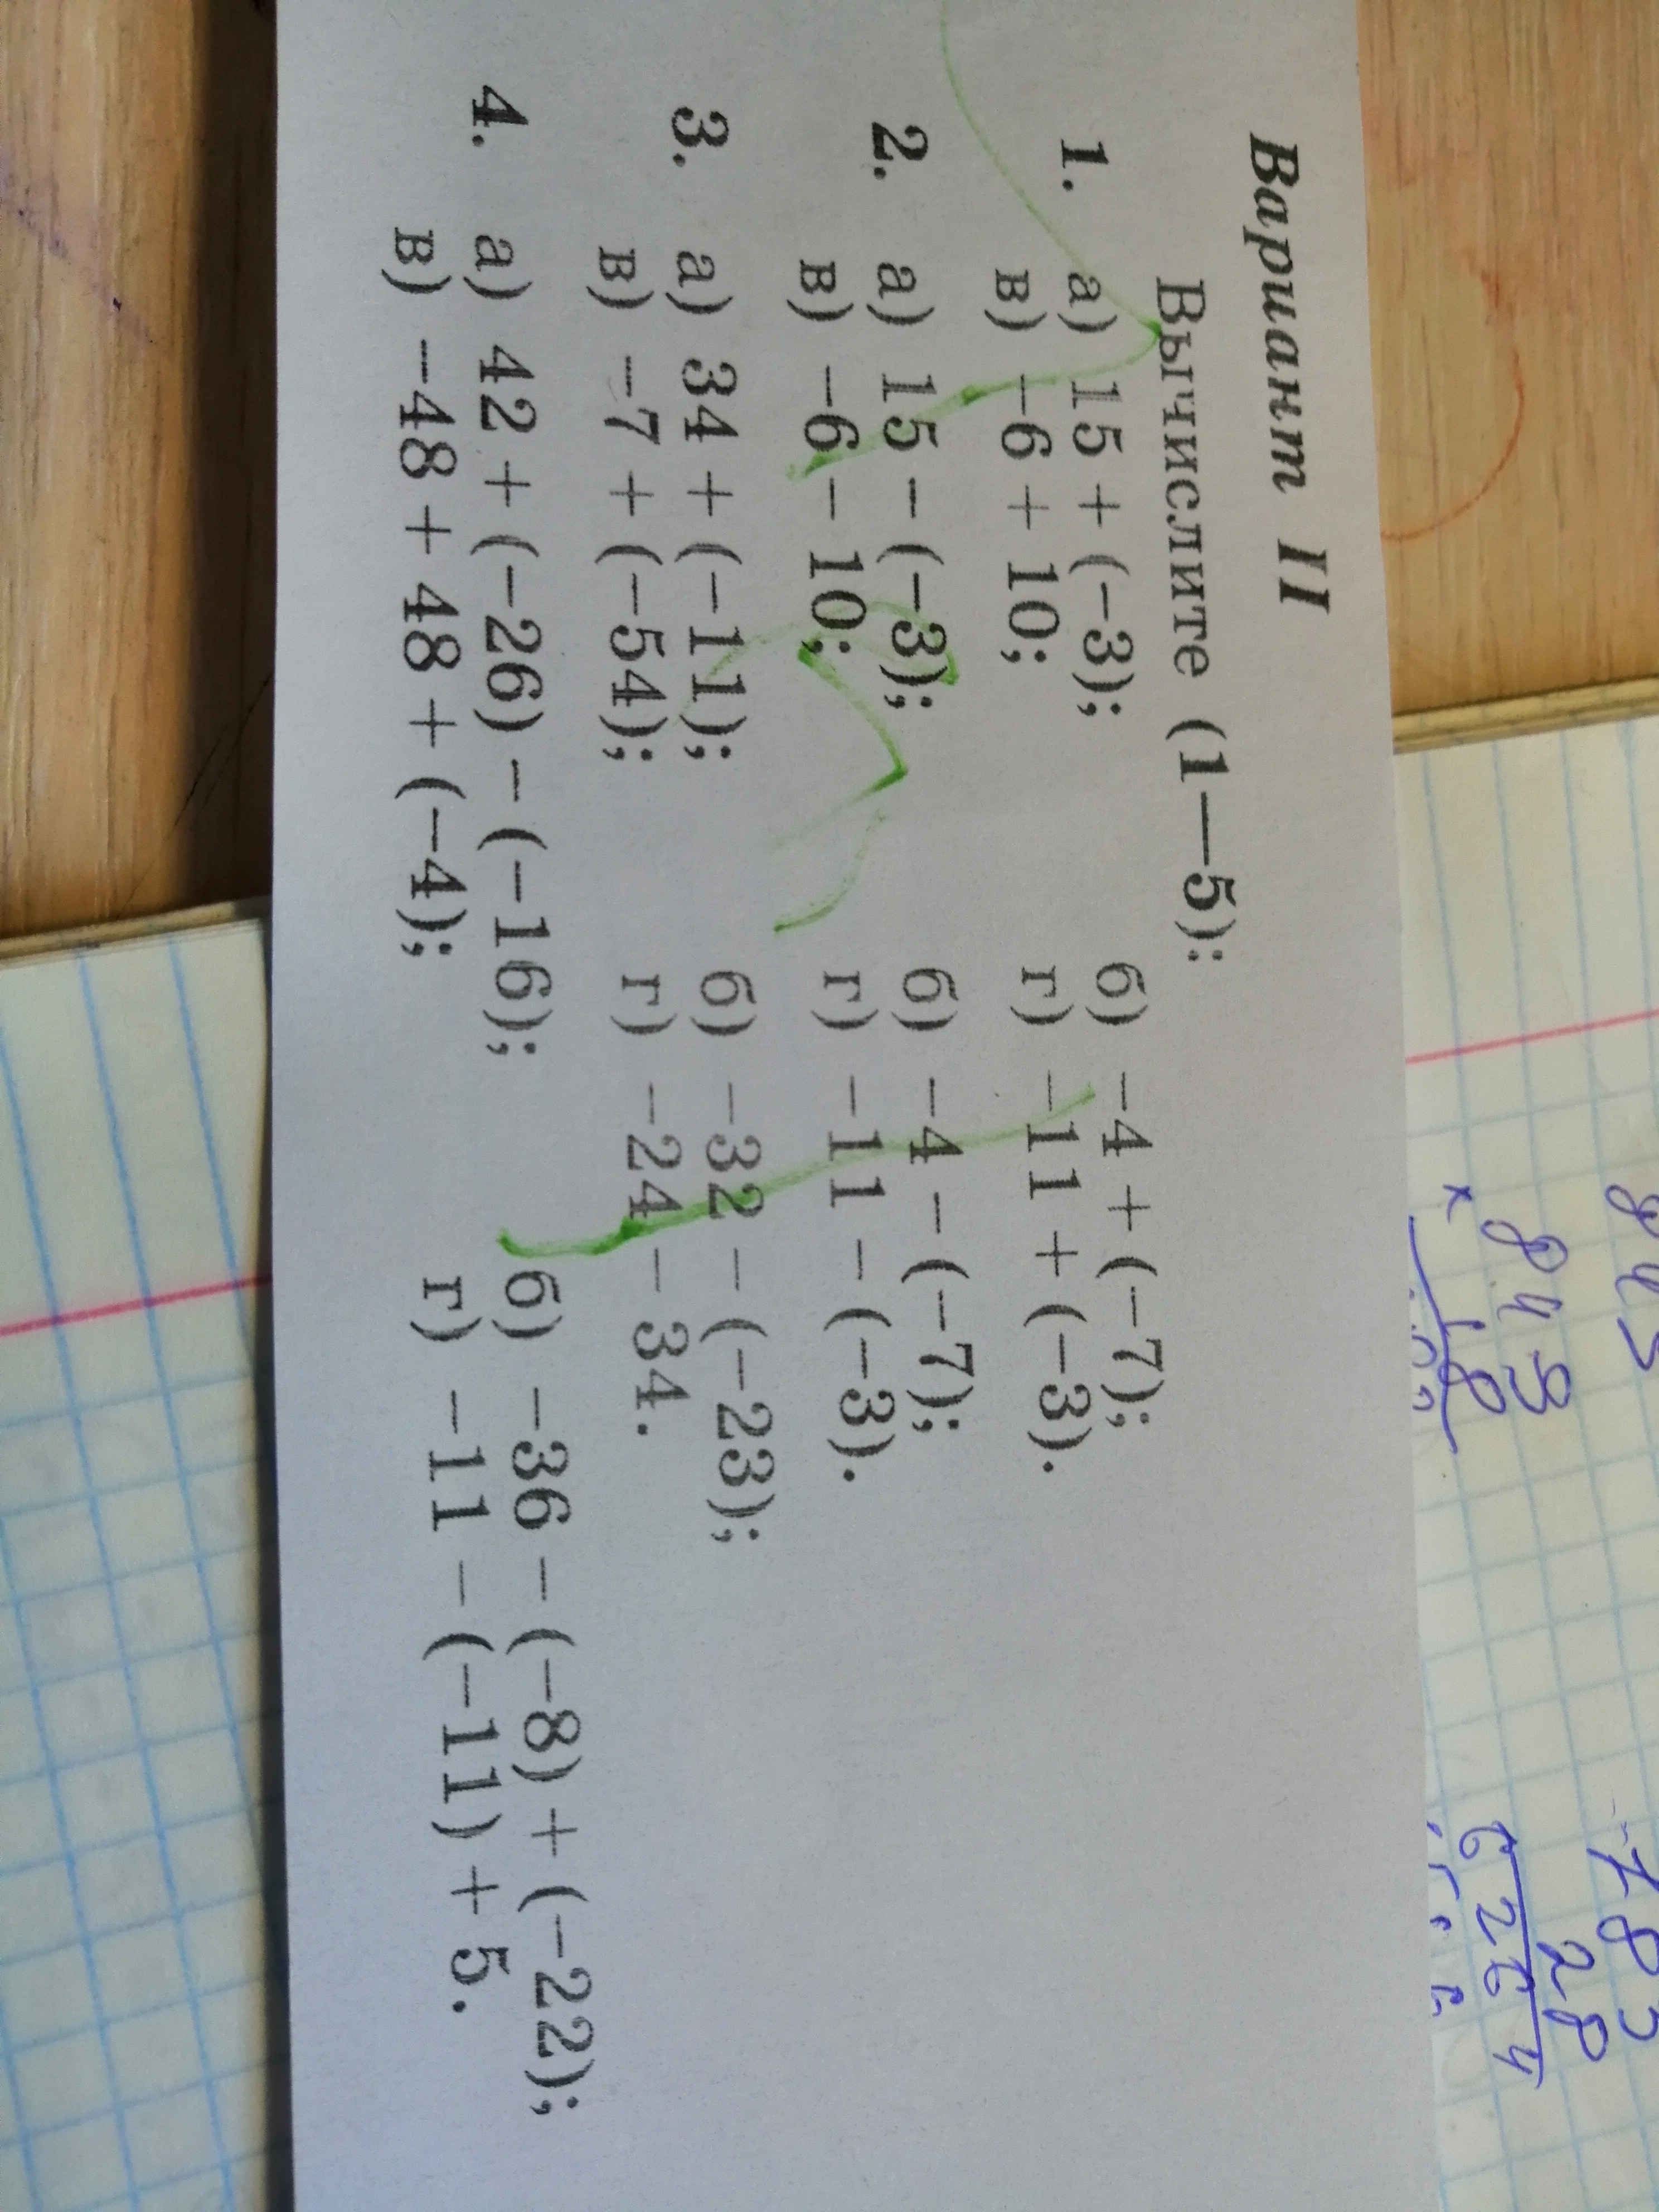 Вариант II
Вычислите (1—5):
1. а) 15 + (−3); б) −4 + (−7);
в) −6 + 10; г) −11 + (−3).
2. а) 15 − (−3); б) −4 − (−7);
в) −6 − 10; г) −11 − (−3).
3. а) 34 + (−11); б) −32 − (−23);
в) −7 + (−54); г) −24 − 34.
4. а) 42 + (−26) − (−16); б) −36 − (−8) + (−22);
в) −48 + 48 + (−4); г) −11 − (−11) + 5.
× 849
18
28
6264